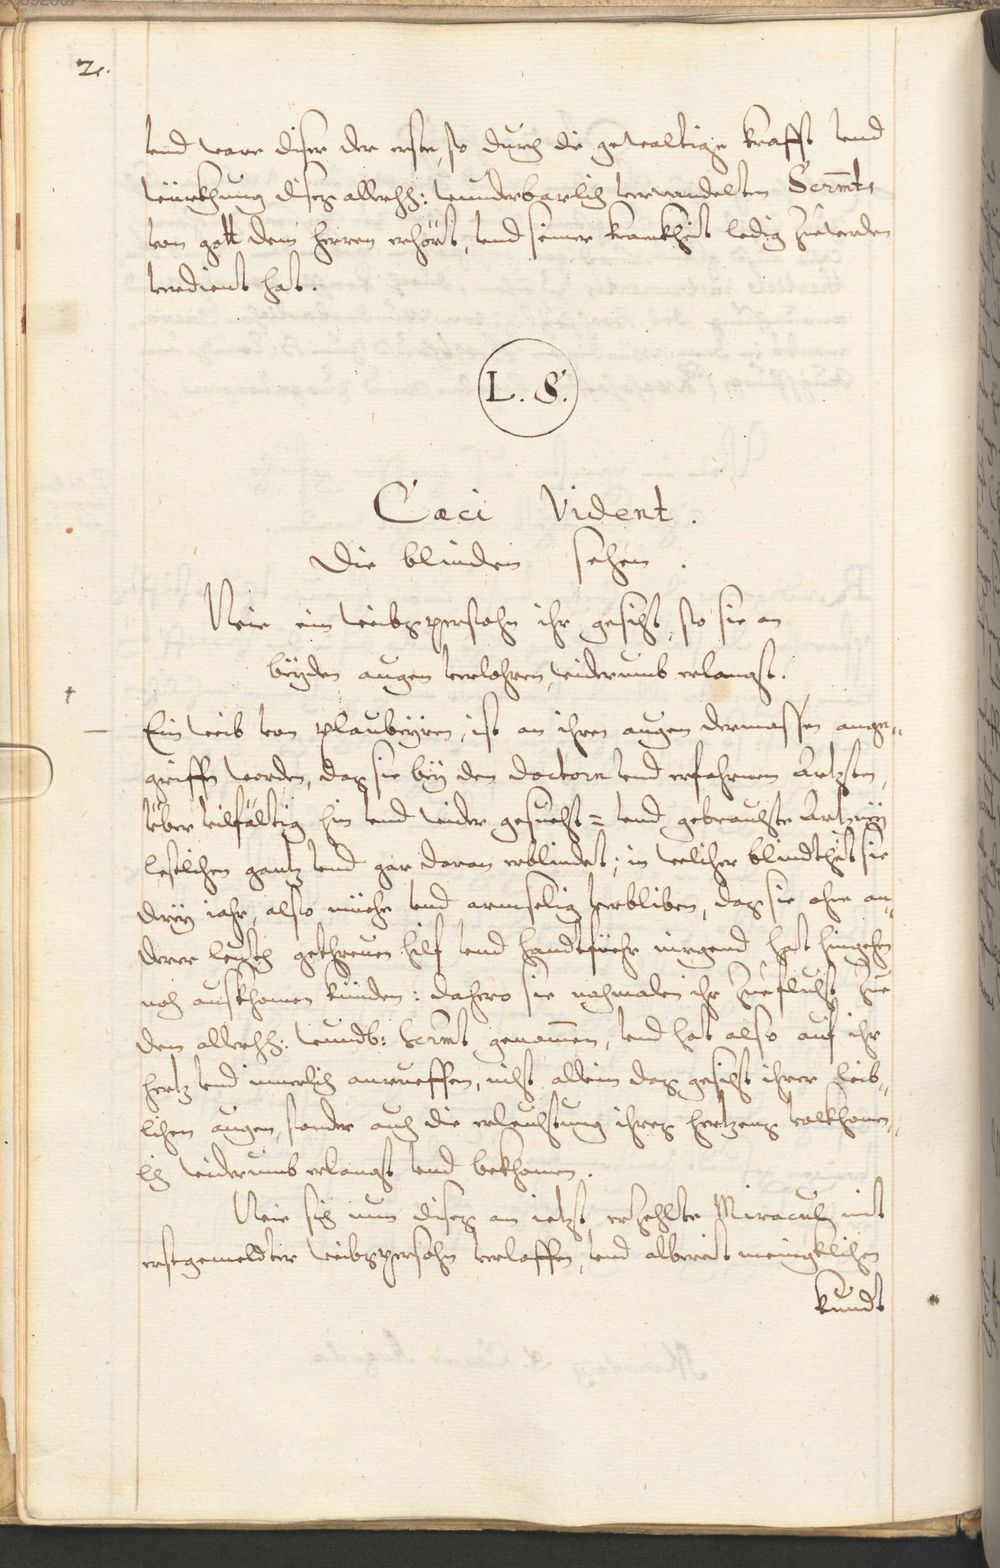 2.
vnd ware diser der erste, so durch die gewaltige krafft vnd
würckhung dises allerhh: wunderbarlich verwandelten Scrmts
von gott dem herren erhört, vnd seiner krankheit ledig zuwerden
verdient hat.
L. S.
Cæci Vident.
Die blinden sehen.
Wie ein weibspersohn ihr gesicht, so sie an
beyden augen verlohren, widerumb erlangt.
Ein weib von plaubeyren, ist an ihren augen dermassen ange-
griffen worden, das sie bey den doctorn vnd erfahrnen Artzten,
über vilfältig hin vnd wider gesucht= vnd gebrauchte Artzney
letstlichen gantz vnd gar daran erblindet, in welcher blindtheit sie
drey iahr, also müehe vnd armselig verbliben, das sie ohne an-
derer leuth getreuen hilf vnd handtfüehr niergend hat hingehn
noch auskhomen künden: dahero sie nachmalen ihr zueflucht zue
dem allerhh: wundb: Scrmt genommen, vnd hat also auf ihr
hertz vnd innerlich anrueffen, nicht allein das gesicht ihrer leib-
lichen augen, sonder auch die erleuchtung ihres hertzens volkhomen-
lich widerumb erlangt vnd bekhomen.
Wie sich nun dises an ietzt erzehlte Miracul mit
erstgemeldter weibspersohn verloffen, vnd albereit meingklichen
kundt